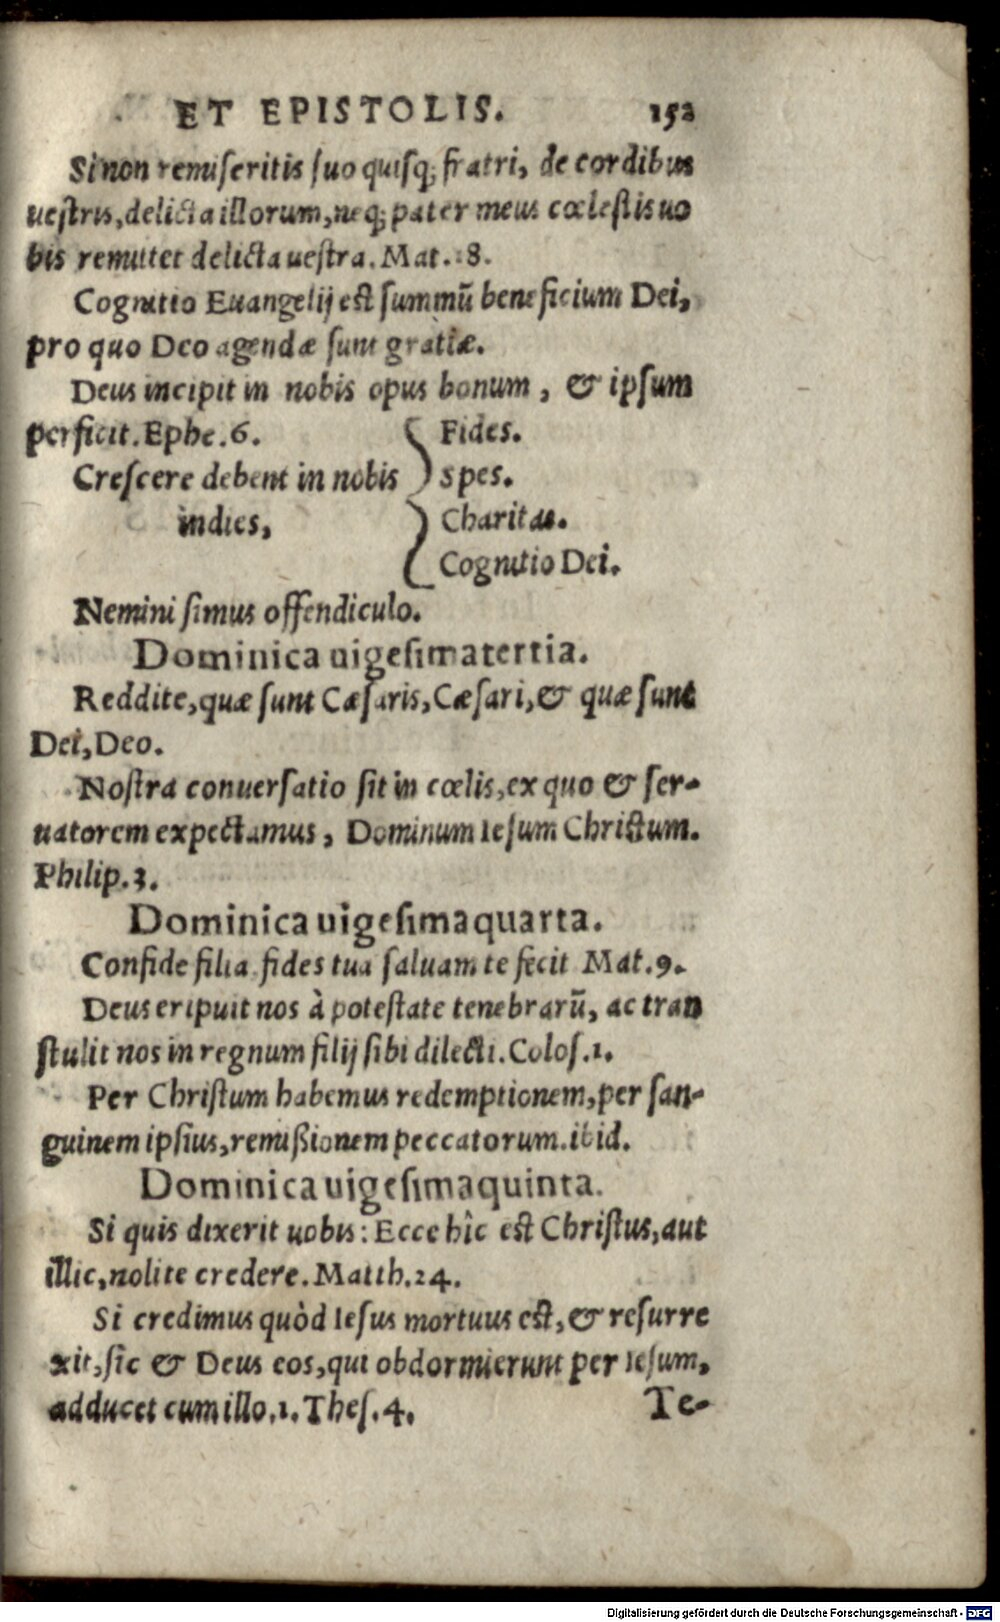 ET EPISTOLIS. 152
Si non remiseritis suo quisq; fratri, de cordibus
uestris, delicta illorum, neq; pater meus cœlestis uo
bis remittet delicta uestra. Mat. 18.
Cognitio Euangelij est summū beneficium Dei,
pro quo Deo agendæ sunt gratiæ.
Deus incipit in nobis opus bonum, & ipsum
perficit. Ephe. 6. Fides.
Crescere debent in nobis spes.
indies, Charitas.
Cognitio Dei.
Nemini simus offendiculo.
Dominica uigesimatertia.
Reddite, quæ sunt Cæsaris, Cæsari, & quæ sunt
Dei, Deo.
Nostra conuersatio sit in cœlis, ex quo & ser-
uatorem expectamus, Dominum Iesum Christum.
Philip. 3.
Dominica uigesimaquarta.
Confide filia fides tua saluam te fecit Mat. 9.
Deus eripuit nos à potestate tenebrarū, ac tran
stulit nos in regnum filij sibi dilecti. Colos. 1.
Per Christum habemus redemptionem, per san-
guinem ipsius, remißionem peccatorum. ibid.
Dominica uigesimaquinta.
Si quis dixerit uobis: Ecce hîc est Christus, aut
illic, nolite credere. Matth. 24.
Si credimus quòd Iesus mortuus est, & resurre
xit, sic & Deus eos, qui obdormierunt per Iesum,
adducet cum illo. 1. Thes. 4. Te-
Digitalisierung gefördert durch die Deutsche Forschungsgemeinschaft - DFG